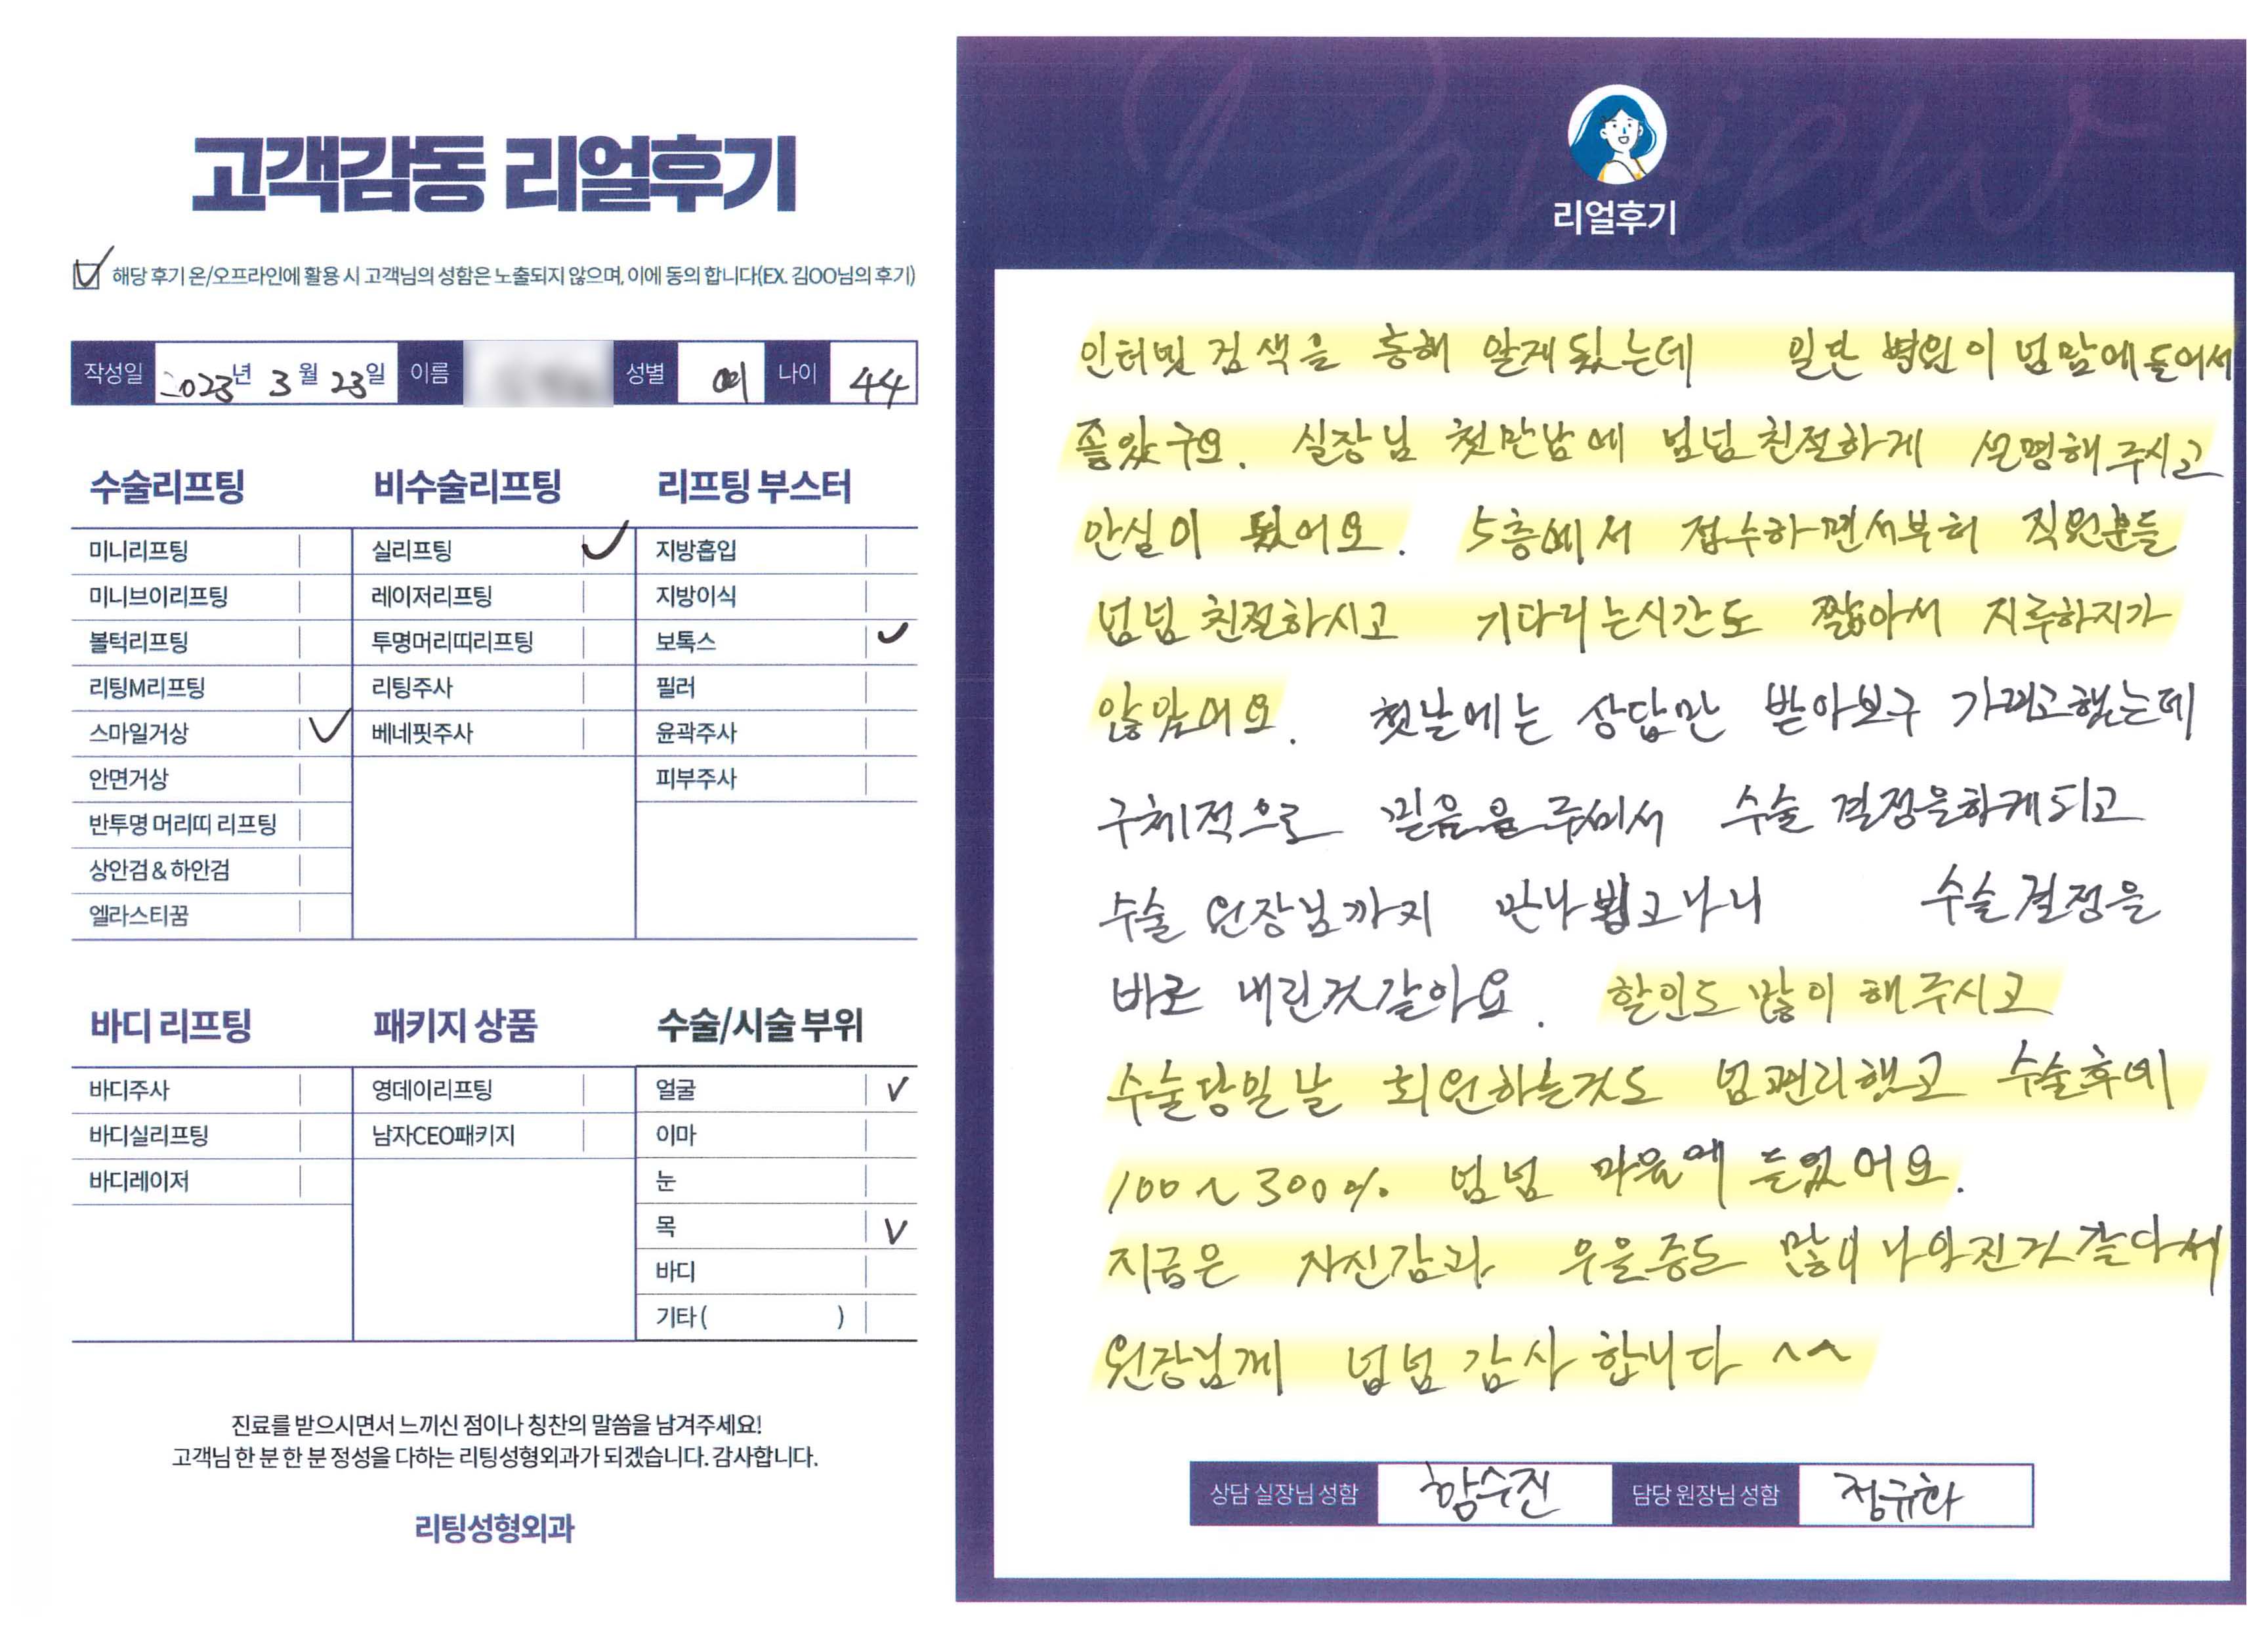 고객감동 리얼후기
해당 후기 온/오프라인에 활용 시 고객님의 성함은 노출되지 않으며, 이에 동의 합니다(EX. 김OO님의 후기)
작성일 2023년 3월 23일 이름 성별 여 나이 44
수술리프팅
미니리프팅
미니브이리프팅
볼턱리프팅
리팅M리프팅
스마일거상
안면거상
반투명 머리띠 리프팅
상안검 & 하안검
엘라스티꿈
비수술리프팅
실리프팅
레이저리프팅
투명머리띠리프팅
리팅주사
베네핏주사
리프팅 부스터
지방흡입
지방이식
보톡스
필러
윤곽주사
피부주사
바디 리프팅
바디주사
바디실리프팅
바디레이저
패키지 상품
영데이리프팅
남자CEO패키지
수술/시술 부위
얼굴
이마
눈
목
바디
기타 ( )
진료를 받으시면서 느끼신 점이나 칭찬의 말씀을 남겨주세요!
고객님 한 분 한 분 정성을 다하는 리팅성형외과가 되겠습니다. 감사합니다.
리팅성형외과
Review
리얼후기
인터넷 검색을 통해 알게됬는데 일단 병원이 넘맘에들어서
좋았구요. 실장님 첫만남에 넘넘친절하게 설명해주시고
안심이 됬어요. 5층에서 접수하면서부터 직원분들
넘넘 친절하시고 기다리는시간도 짧아서 지루하지가
않았어요. 첫날에는 상담만 받아보구 가려고했는데
구체적으로 믿음을 주셔서 수술 결정을하게되고
수술 원장님까지 만나뵙고나니 수술결정을
바로 내린것같아요. 할인도 많이 해주시고
수술당일날 회원하는것도 넘편리했고 수술후에
100~300% 넘넘 마음에 들었어요.
지금은 자신감과 우울증도 많이 나아진것 같아서
원장님께 넘넘 감사합니다 ^^
상담 실장님 성함 함수진 담당 원장님 성함 정규화